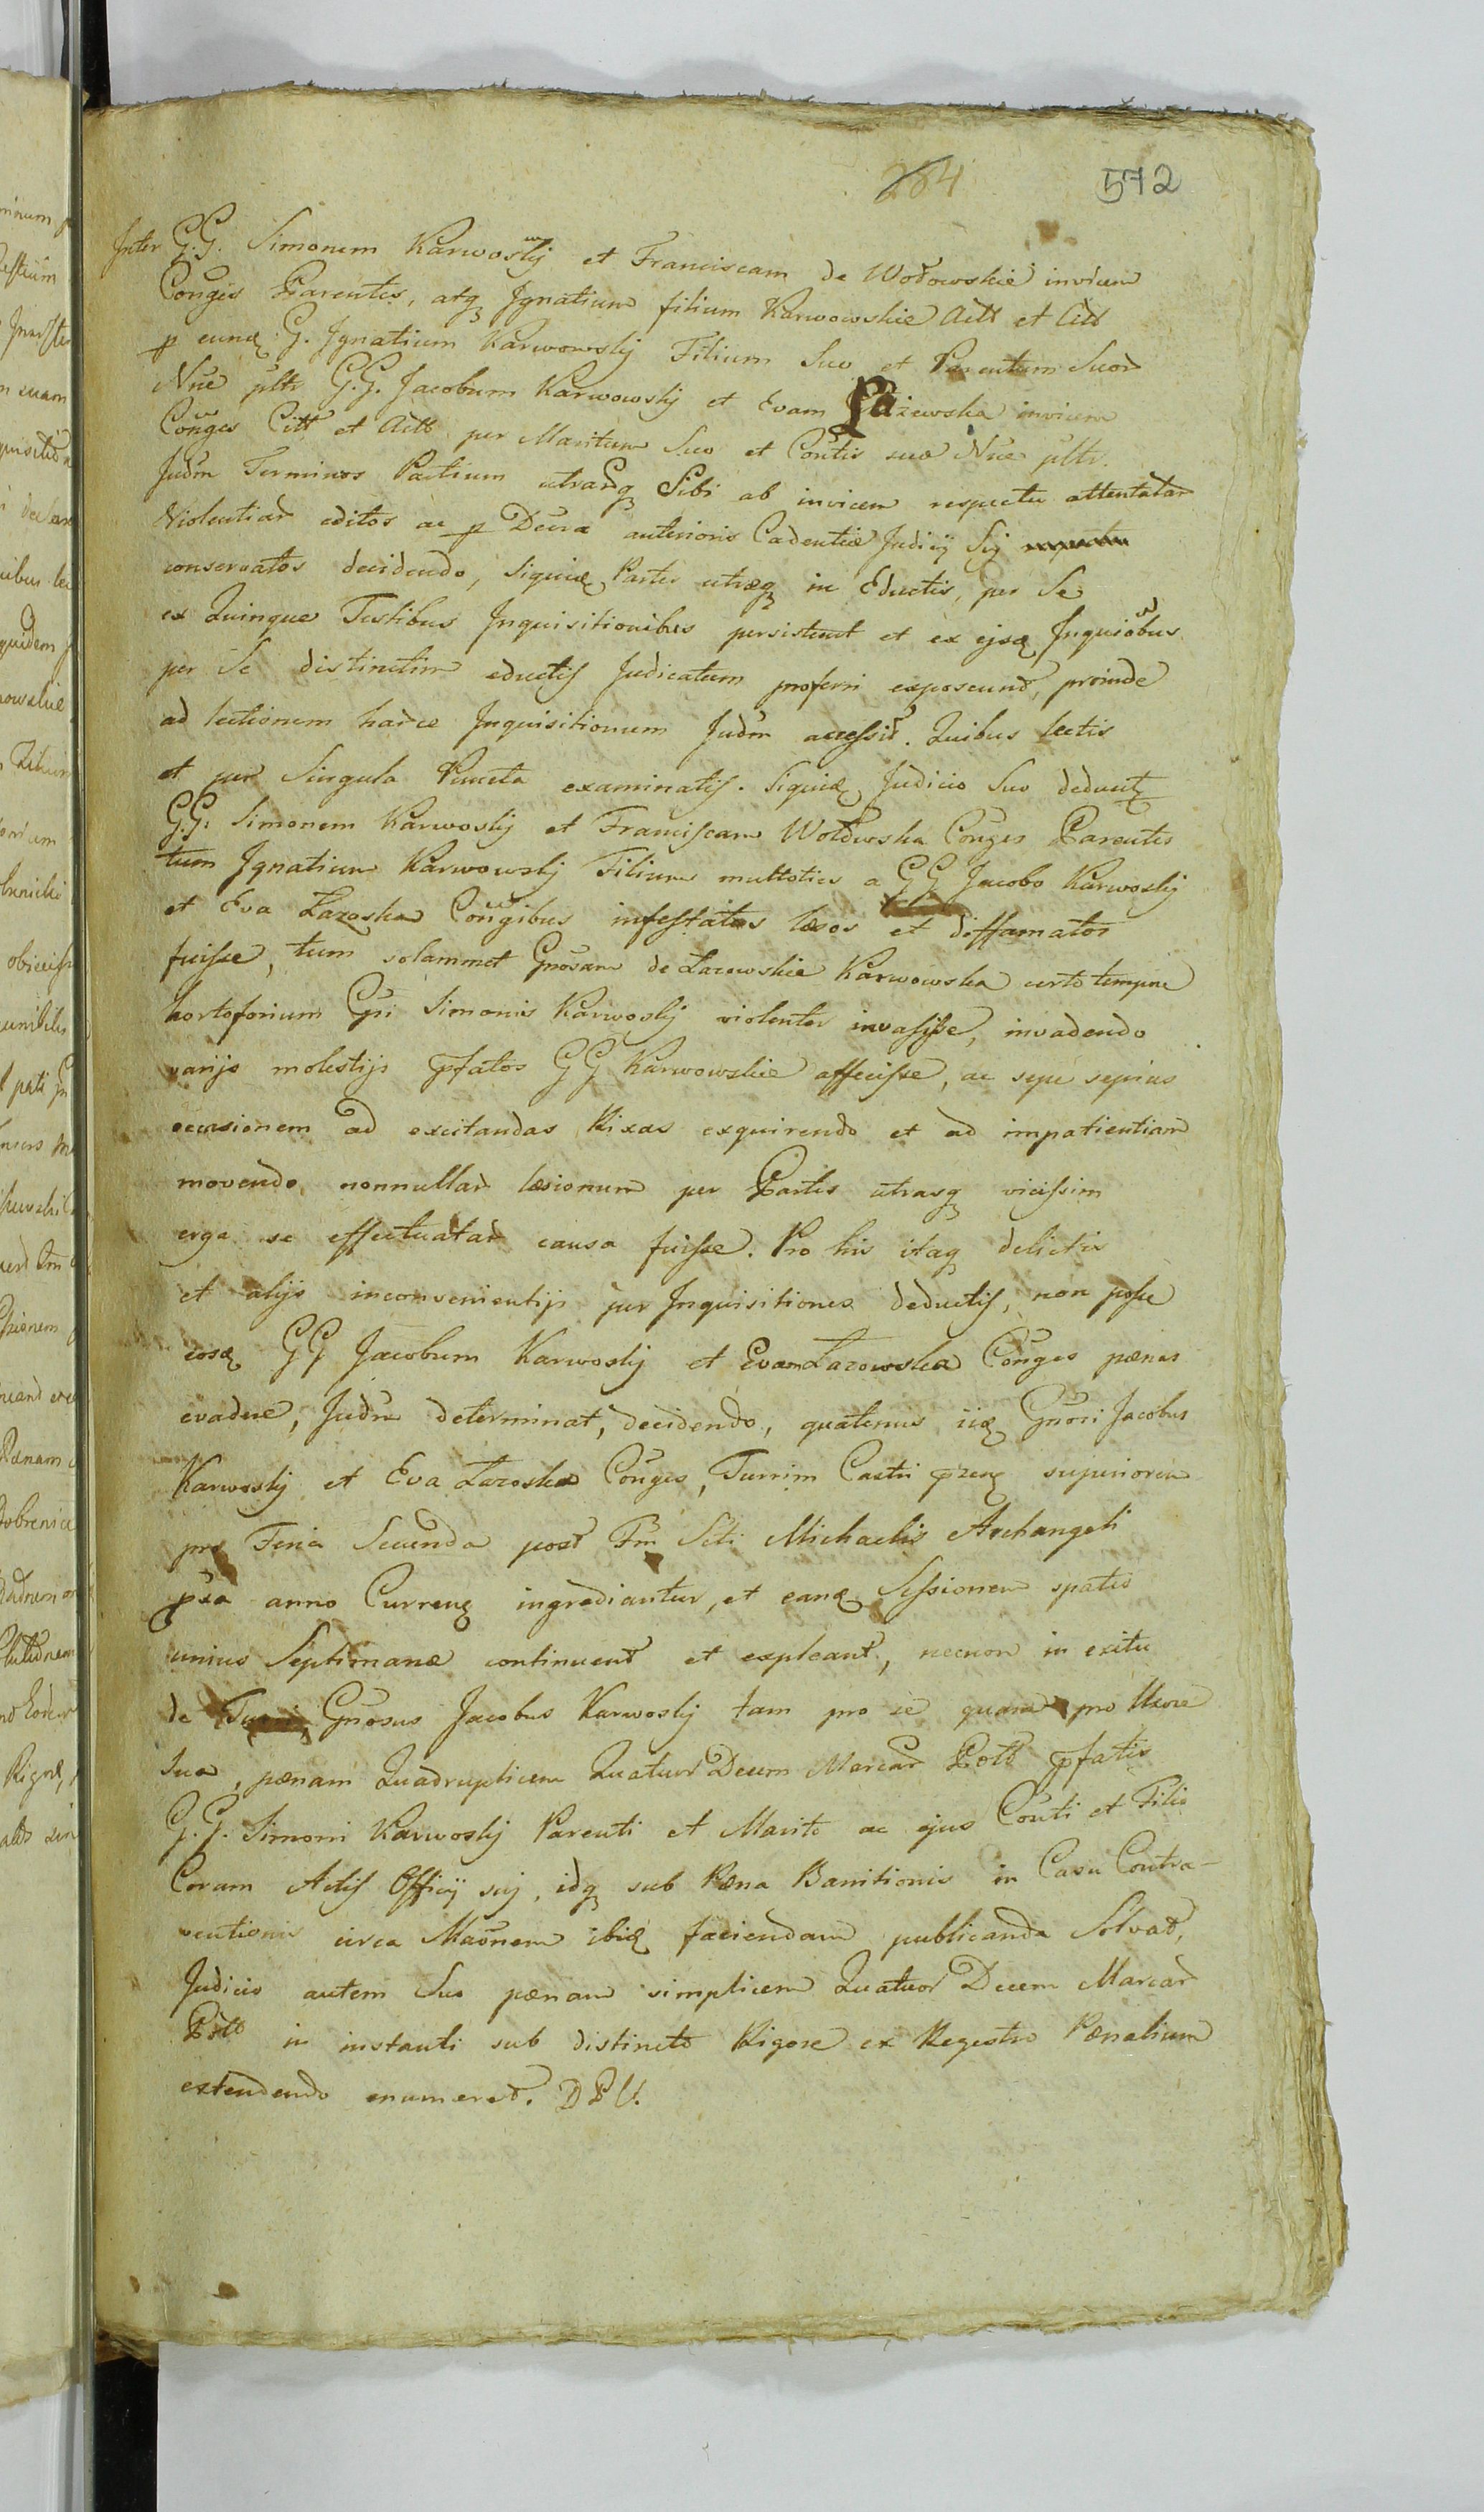 284 572
Inter G.G. Simonem Karwoskij et Franciscam de Wodowskie invicem
Conges Parentes, atq Ignatium filium Karwowskie Act et Citt
p eund G. Ignatium Karwowskij Filium Suo et Parentum Suor
Nne pltr G.G. Jacobum Karwowskij et Evam Łażewska invicem
Conges Citt et Actt per Maritum Suo et Contis suæ Nne pltr.
Judm Terminos Partium utrarq Sibi ab invicem respectu attentatar
Violentiar editos ac p Decra anterioris Cadentiæ Judicij Sij
conservatos decidendo, siquid Partes utræq in Eductis, per Se
ex Quinque Testibus Inquisitionibus persistunt et ex ejsd Inquiõbus
per Se distinctim eductis Judicatum proferri exposcunt, proinde
ad lectionem harce Inquisitionum Judm accessit. Quibus lectis
et per Singula Puncta examinatis. Siquid Judicio Suo deduct
GG. Simonem Karwoskij et Franciscam Wodwska Conges Parentes
tum Ignatium Karwowskij Filium multoties a GG Jacobo Karwoskij
et Eva Lazoska Congibus infestatos læsos et diffamatos
fuisse, tum solammet Gnosam de Lazowskie Karwowska certo tempore
hortoforium Gsi Simonis Karwoskij violenter invasisse, invadendo
varijs molestijs pfatos GG Karwowskie affecisse, ac sepe sepius
occasionem ad excitandas Rixas exquirendo et ad impatientiam
movendo nonnullar læsionum per Partes utrasq vicissim
erga se effectuatar causa fuisse. Pro his itaq delictis
et alijs inconvenientijs per Inquisitiones deductis, non posse
eosd GG Jacobum Karwoskij et Evam Lazowska Conges pænas
evadere, Judm determinat, decidendo, quatenus iid Gnosi Jacobus
Karwoskij et Eva Lazoska Conges, Turrim Castri præs superiorem
pro Feria Secunda post Fm Scti Michaelis Archangeli
pxa anno Curren ingrediantur, et eand Sessionem spatio
unius Septimanæ continuent et expleant, necnon in exitu
de Turri Gnosus Jacobus Karwoskij tam pro se quam pro Uxore
Sua, pænam Quadruplicem Quatuor Decem Marcar Poll pfatis
G.G. Simoni Karwoskij Parenti et Marito ac ejus Conti et Filio
Coram Actis Officij sij, idq sub Pæna Banitionis in Casu Contra-
ventionis circa Maõnem ibid faciendam publicanda Solvat,
Judicio autem Suo pænam simplicem Quatuor Decem Marcar
Poll in instanti sub distincto Rigore ex Regestro Pænalium
extendendo enumeret. D P V.